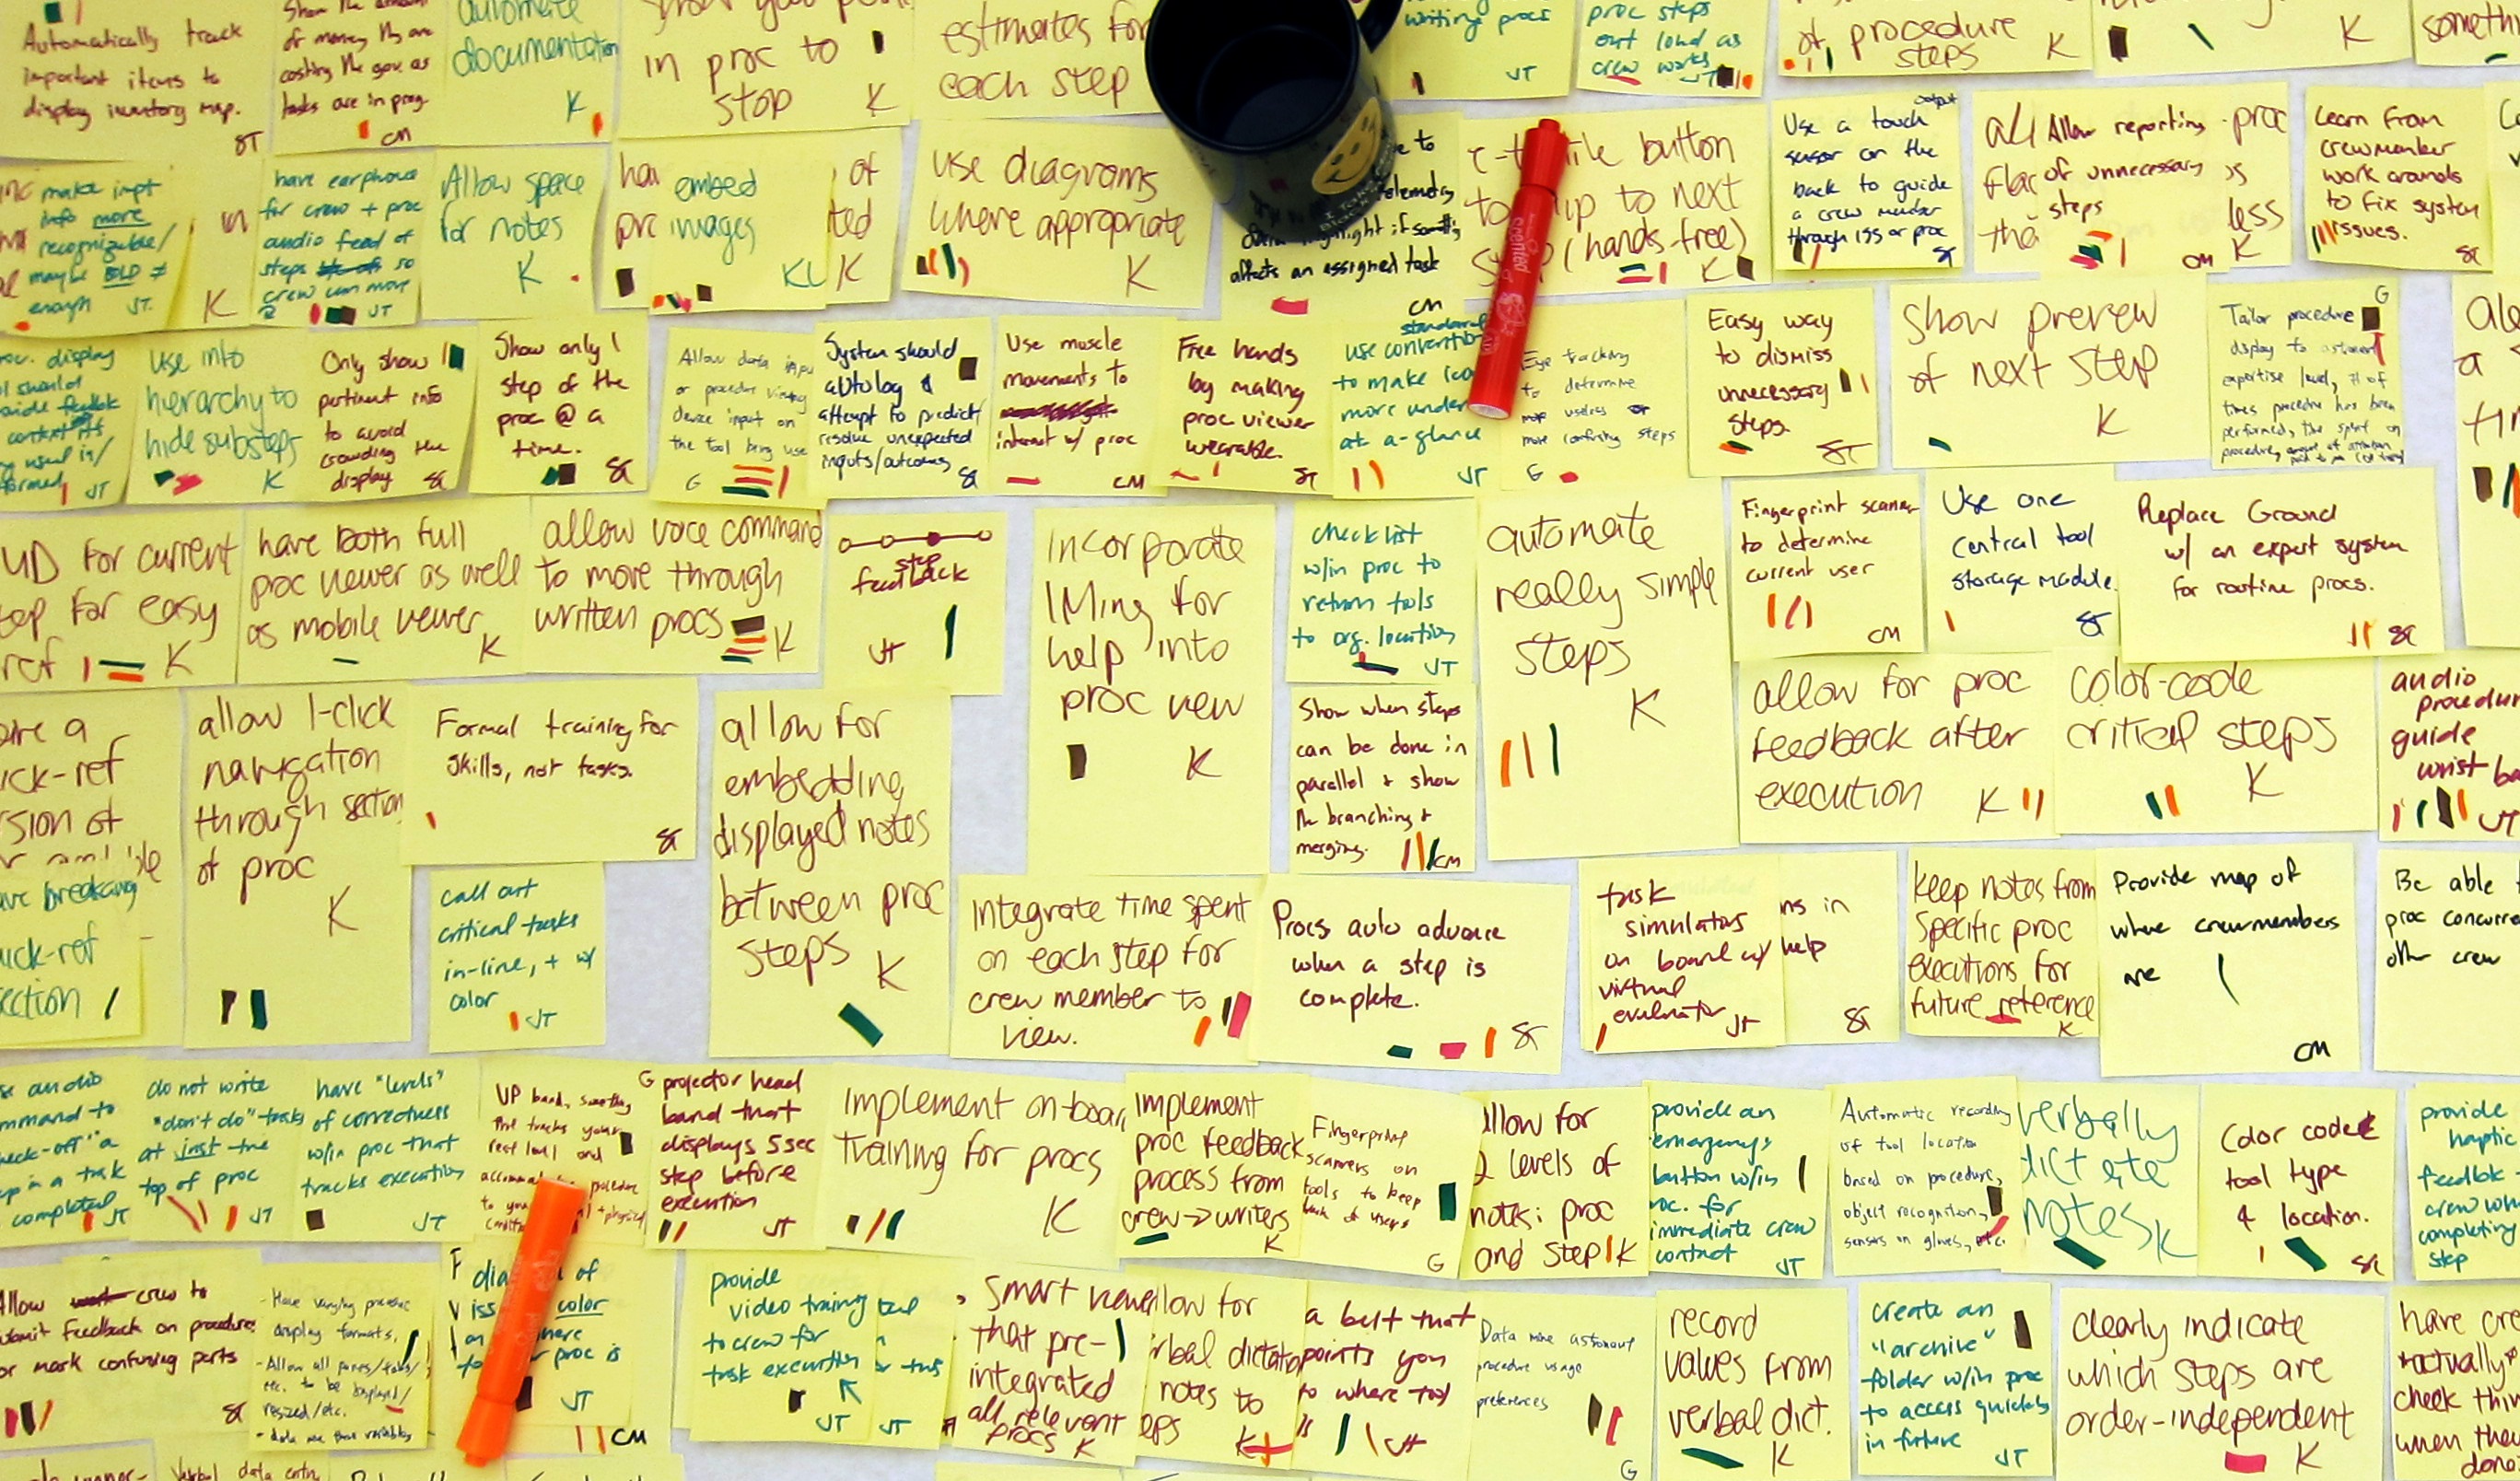 Automatically track
important items to
display inventory map.
ST
of money they are
costing the gov. as
tasks are in prog.
CM
automate
documentation
K
in proc to
stop
K
estimates for
each step
writing procs
JT
proc steps
out loud as
crew works
JT
of procedure
steps
K
K
someth
make impt
info more
recognizable/
maybe BOLD ≠
enough
JT
in
K
have earphones
for crew + proc
audio feed of
steps so
crew can move
JT
Allow space
for notes
K
embed
images
KL
of
ted
K
use diagrams
where appropriate
K
affects an assigned task
CM
button
to next
(hands-free)
K
Use a touch
output
sensor on the
back to guide
a crew member
through ISS or proc
Allow reporting
of unnecessary
steps
CM
proc
less
K
Learn from
crewmember
work arounds
to fix system
issues.
display
should
used in/
JT
Use info
hierarchy to
hide substeps
K
Only show
pertinent info
to avoid
crowding the
display
Show only 1
step of the
proc @ a
time.
Allow data input
or procedure viewing
device input on
the tool being use
G
System should
autolog &
attempt to predict/
resolve unexpected
inputs/outcomes
Use muscle
movements to
interact w/ proc
CM
Free hands
by making
proc viewer
wearable.
standard
use convention
to make ico
more under
at a-glance
JT
Eye tracking
to determine
useless or
more confusing steps
G
Easy way
to dismiss
unnecessary
steps.
ST
show preview
of next step
K
G
Tailor procedure
display to astronaut
expertise level, # of
times procedure has been
performed, time spent on
HUD for current
step for easy
ref
K
have both full
proc viewer as well
as mobile viewer
K
allow voice command
to move through
written procs
K
step
feedback
JT
incorporate
IMing for
help into
proc view
K
checklist
w/in proc to
return tools
to org. location
JT
automate
really simple
steps
K
Fingerprint scanner
to determine
current user
CM
Use one
central tool
storage module.
Replace Ground
w/ an expert system
for routine procs.
Show when steps
can be done in
parallel + show
the branching +
merging.
CM
allow for proc
feedback after
execution
K
color-code
critical steps
K
audio
procedur
guide
wrist ba
JT
ick-ref
sion of
allow 1-click
navigation
through section
of proc
K
Formal training for
skills, not tasks.
allow for
embedding
displayed notes
between proc
steps
K
breaking
quick-ref
section
call out
critical tasks
in-line, + w/
color
JT
Integrate time spent
on each step for
crew member to
view.
Procs auto advance
when a step is
complete.
task
simulators
on board w/
virtual
evaluator
JT
ns in
help
keep notes from
specific proc
executions for
future reference
K
Provide map of
where crewmembers
are
CM
Be able t
proc concurre
other crew
audio
command to
check-off" a
step in a task
completed
JT
do not write
"don't do" tasks
at just the
top of proc
JT
have "levels"
of correctness
w/in proc that
tracks execution
JT
UP band, something
that tracks your
rest level and
G
projector head
band that
displays 5sec
step before
execution
JT
implement on-boar
training for procs
K
implement
proc feedback
process from
crew → writers
K
Fingerprint
scanners on
tools to keep
track of users
G
allow for
2 levels of
notes: proc
and step
K
provide an
emergency
button w/in
proc. for
immediate crew
contact
JT
Automatic recording
of tool location
based on procedure,
object recognition,
sensors on gloves, etc.
verbally
dictate
notes
K
Color code
tool type
& location.
provide
haptic
feedbk
crew wh
completing
step
Allow crew to
submit feedback on procedure
or mark confusing parts
- Have varying procedure
display formats.
- Allow all panes/tabs/
etc. to be displayed/
resized/etc.
- data mine these variables
of
color
where
proc is
JT
CM
provide
video training
to crew for
task execution
JT
JT
Smart viewer
that pre-
integrated
all relevant
procs
K
allow for
verbal dictatio
notes to
K
a belt that
points you
to where tool
is
JT
Data mine astronaut
procedure usage
preferences
G
record
values from
verbal dict.
K
create an
"archive"
folder w/in proc
to access quickly
in future
JT
clearly indicate
which steps are
order-independent
K
have cre
actually
check thin
when they
done
Verbal data entry